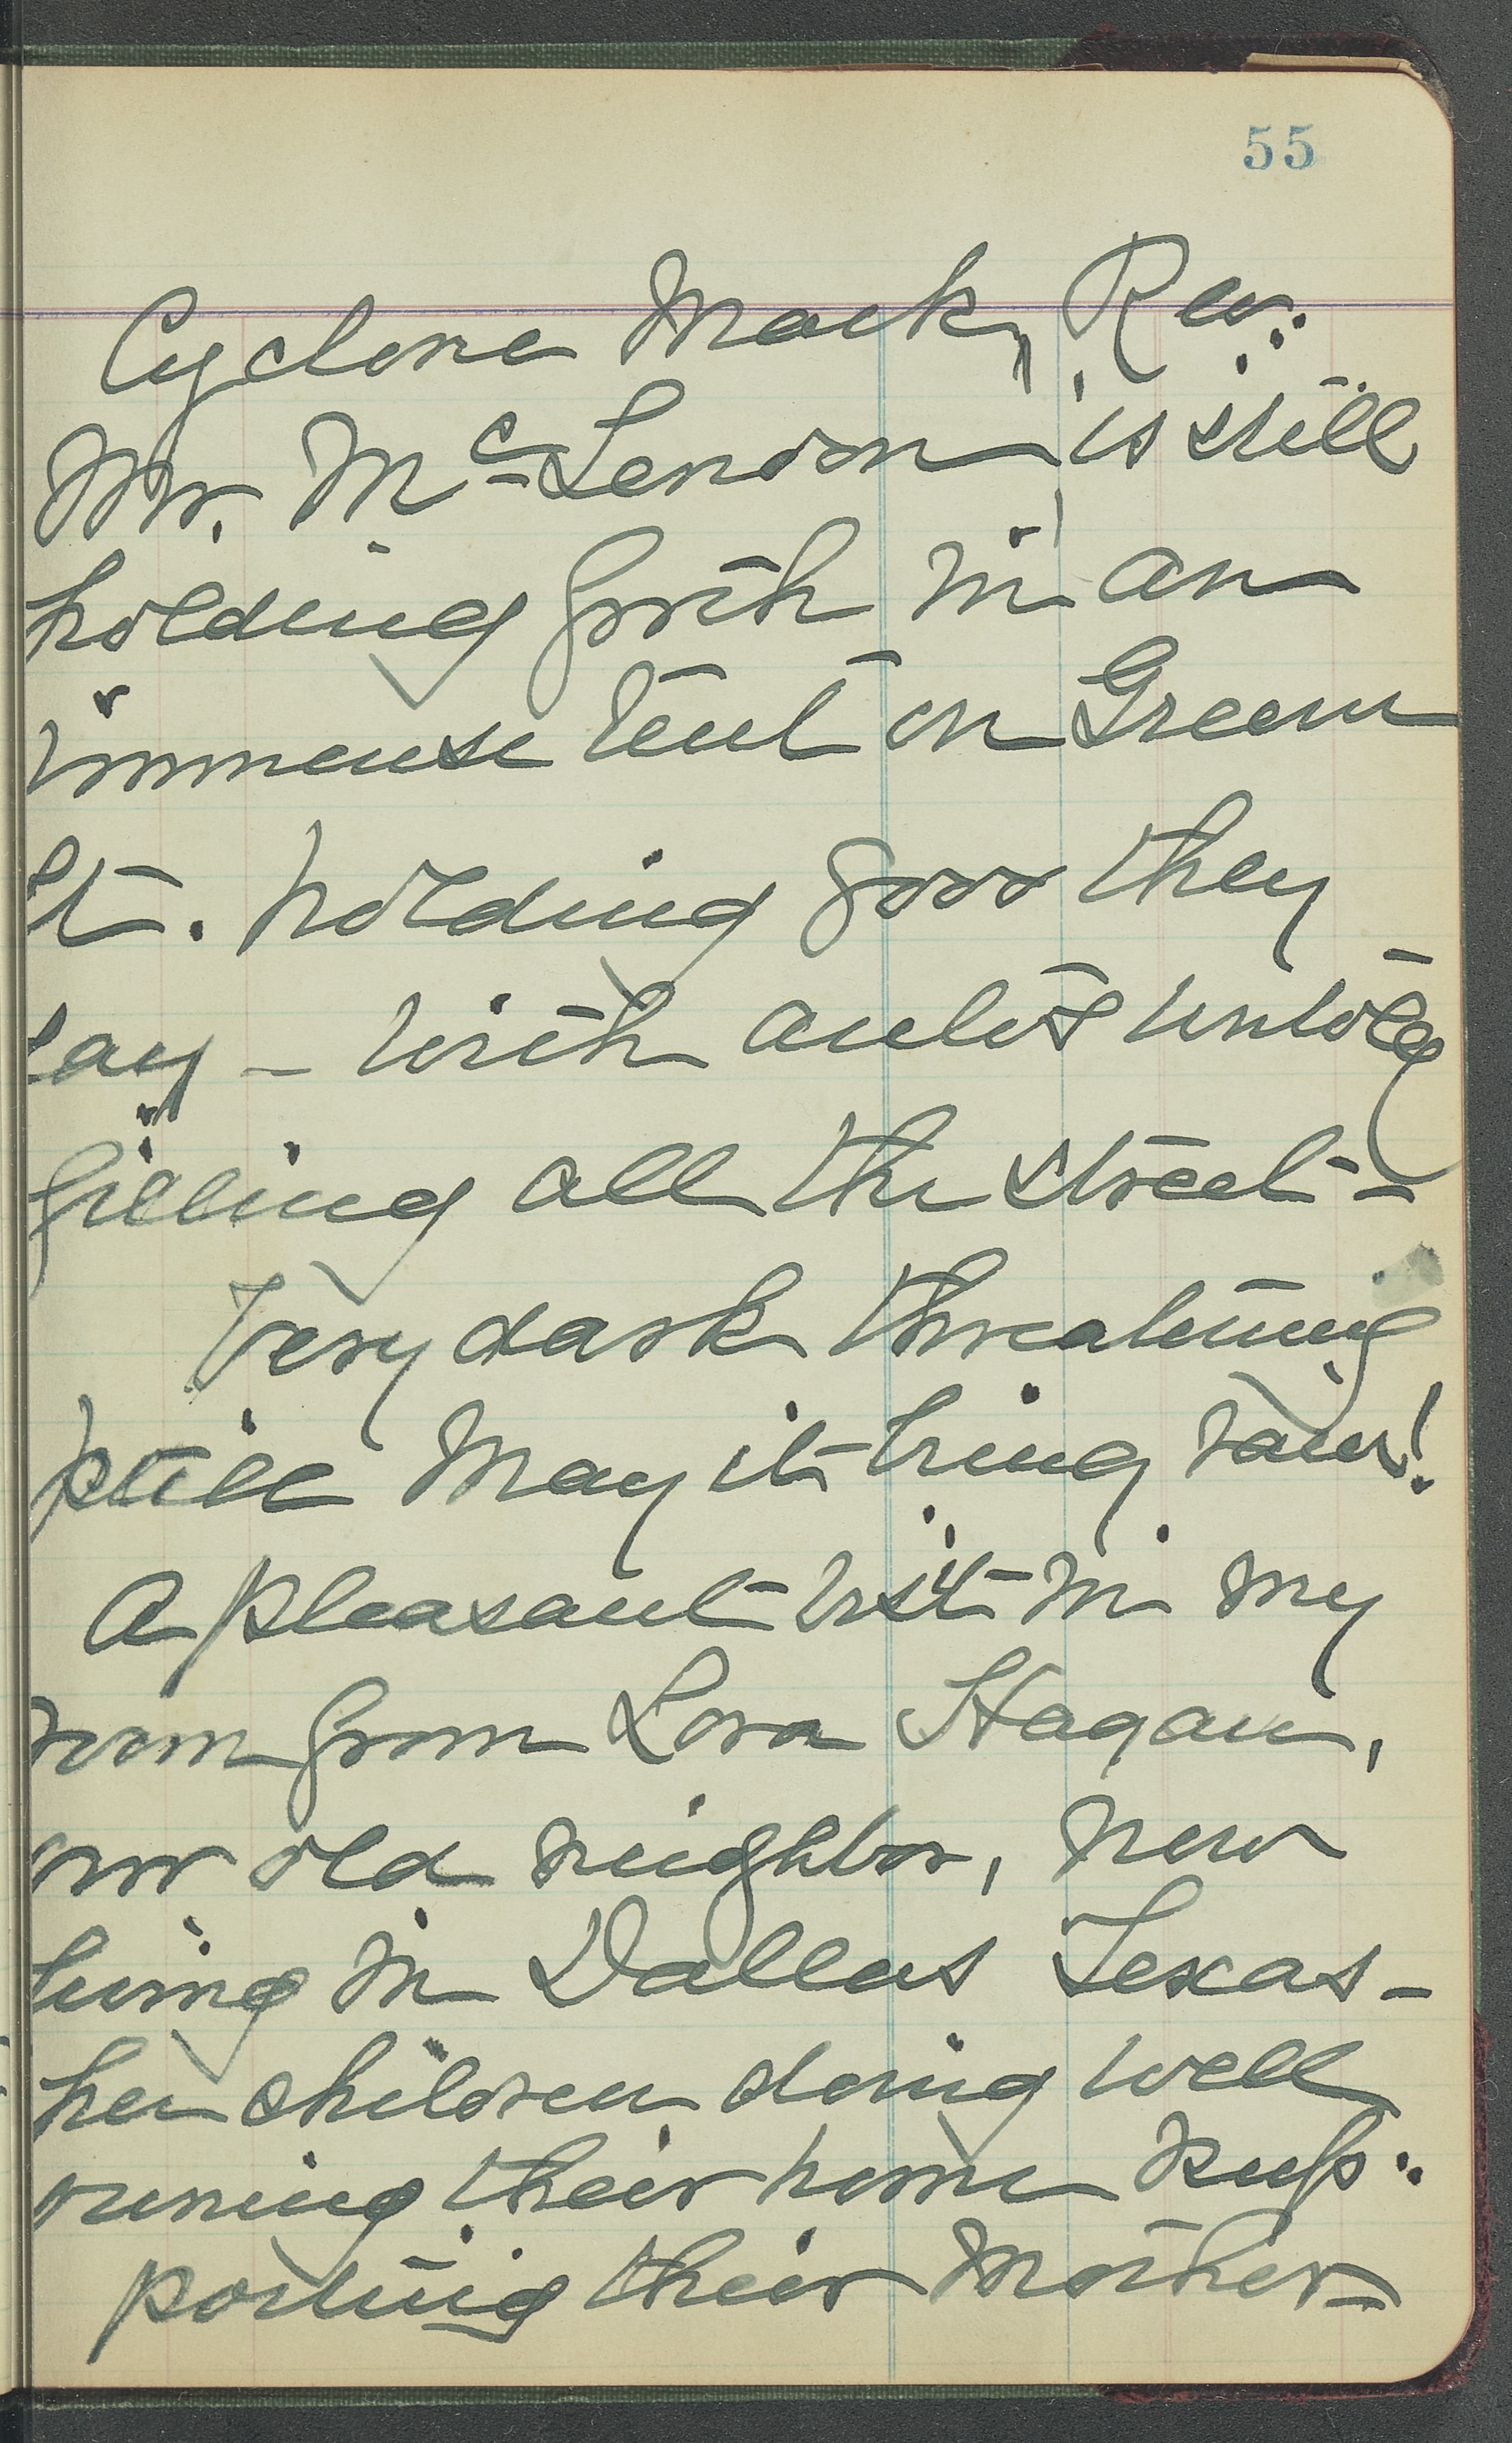 55
Cyclone Mack, Rev.
Mr. McLendon is still
holding forth in an
immense tent on Green
St. holding 5000 they
say - with autos untold
filling all the street -
Very dark threatning
still May it bring rain!
A pleasant visit in my
room from Lora Hagan,
our old neighbor, now
living in Dallas Texas -
her children doing well
owning their home sup-
porting their Mother -